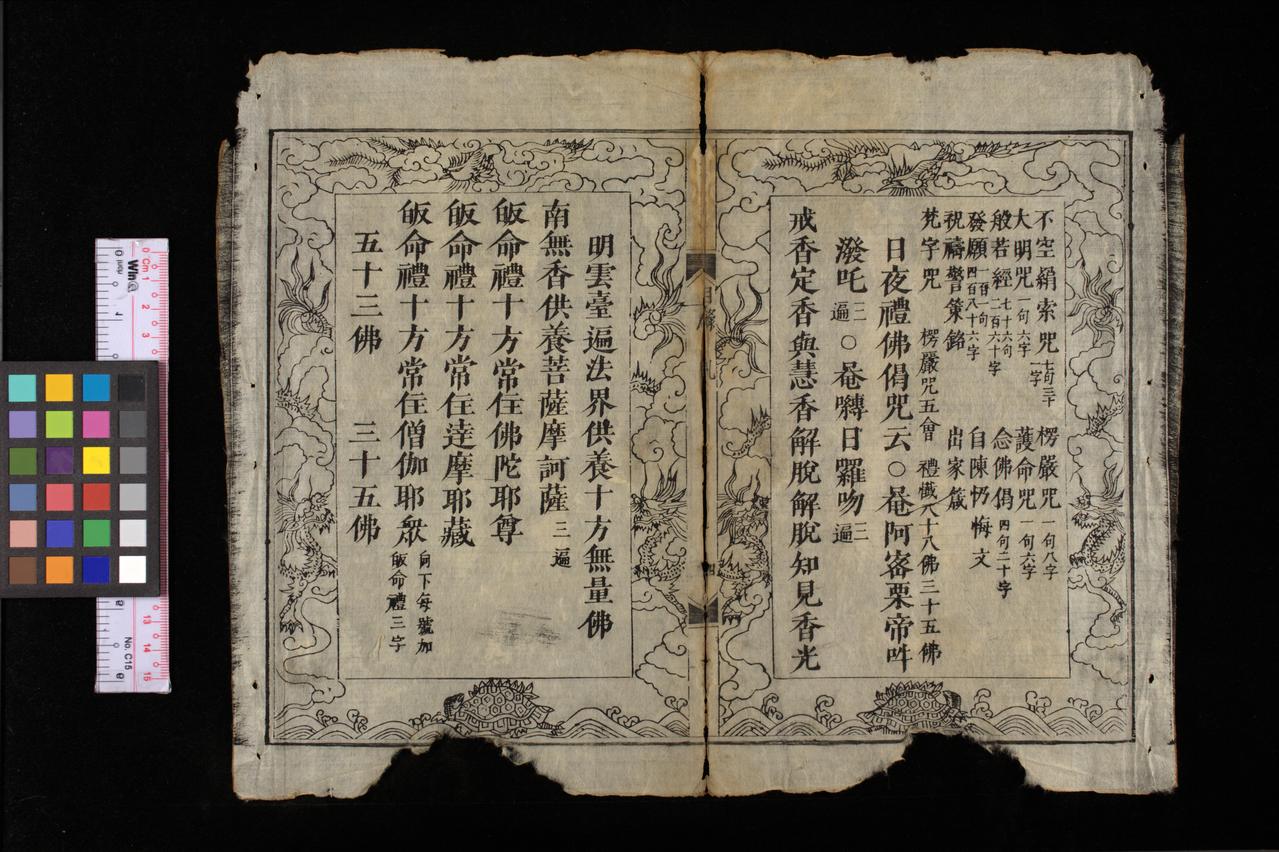 不空絹索咒七句三十一字　楞嚴咒一句八字
大明咒一句六字　護命咒一句六字
般若經七十六句二百六十字　念佛偈四句二十字
發願一百一句四百八十六字　自陳懺悔文
祝禱警策銘　出家箴
梵字咒　楞嚴咒五會　禮懺八十八佛三十五佛
日夜禮佛偈咒云○菴阿宻栗帝吽
潑吒三遍○菴嚩日羅吻三遍
戒香定香與慧香解脫解脫知見香光
明雲臺遍法界供養十方無量佛
南無香供養菩薩摩訶薩三遍
皈命禮十方常住佛陀耶尊
皈命禮十方常住達摩耶藏
皈命禮十方常住僧伽耶衆向下每號加皈命禮三字
五十三佛　三十五佛
Cm 1
No. C15
13 14 15